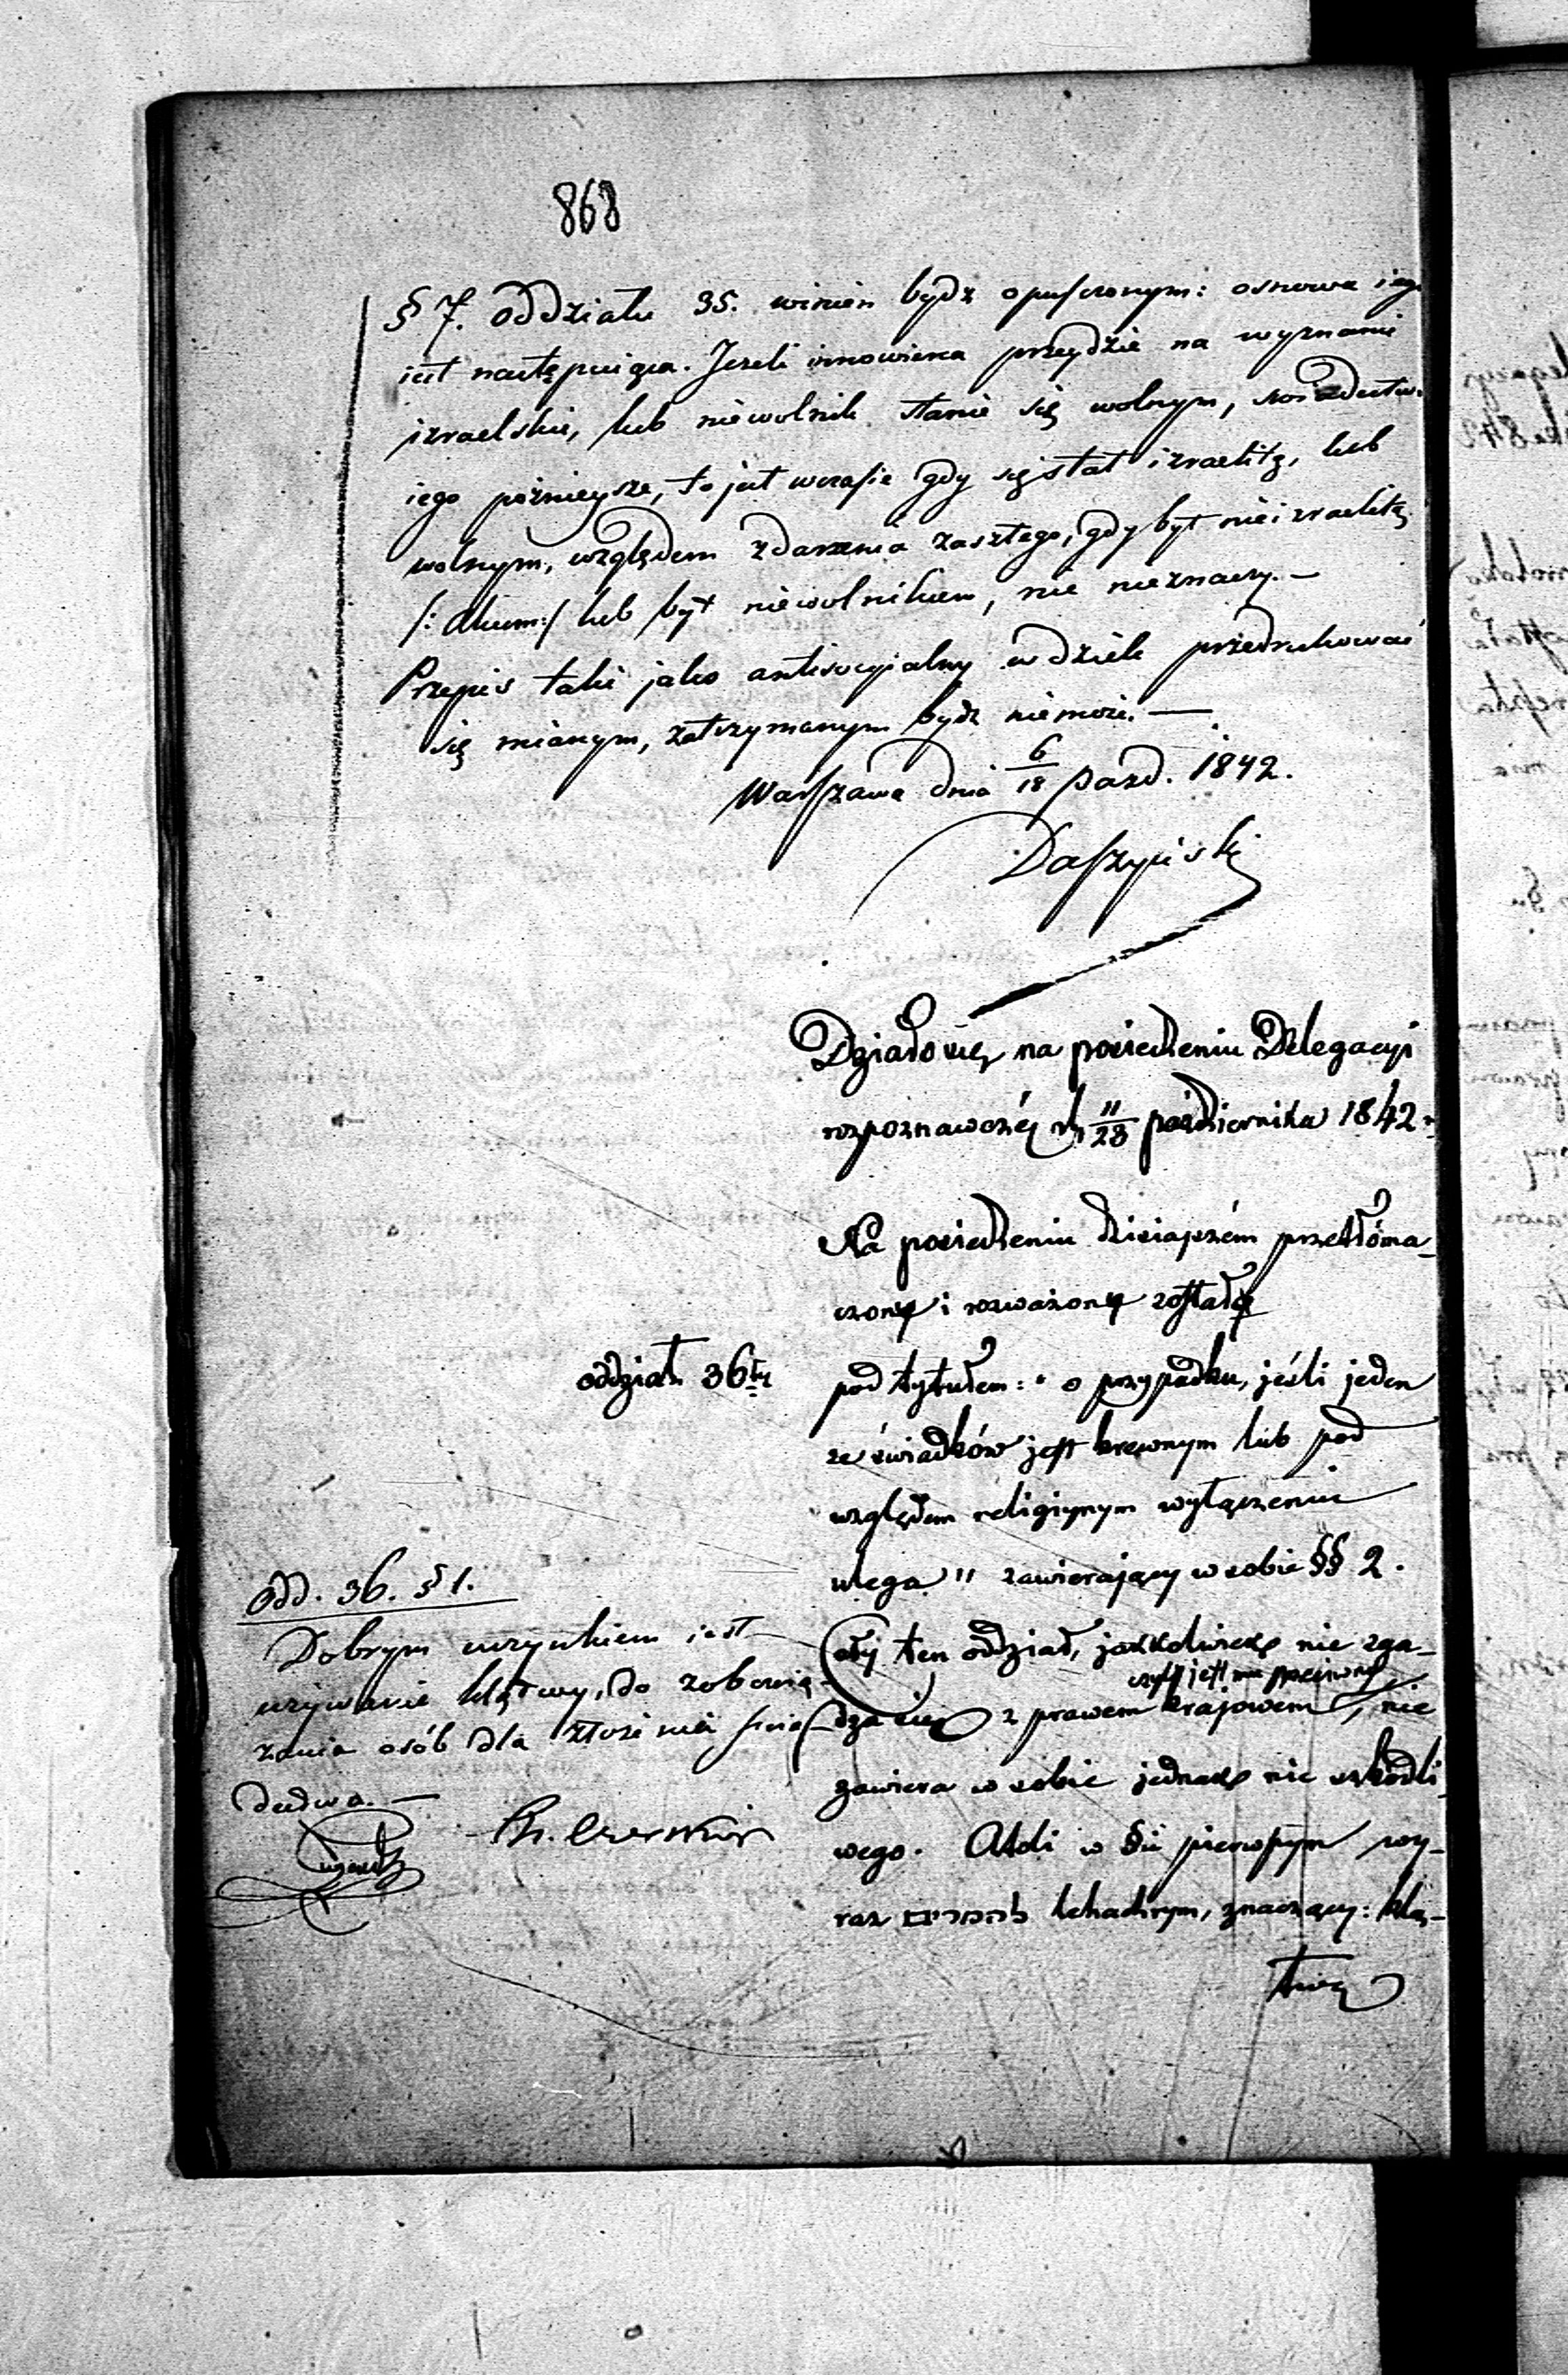 868
§ 7. oddziału 35. winien bydź opuszczonym: osnowa iego
iest następuiąca. Jeżeli innowierca przeydzie na wyznanie
izraelskie, lub niewolnik stanie się wolnym, świadectwo
iego poźnieysze, to jest w czasie gdy się stał izraelitą, lub
wolnym, względem zdarzenia zaszłego, gdy był nieizraelitą
/: Akum:/ lub był niewolnikiem, nie nieznaczy. —
Przepis taki jako antisocyialny w dziele przedrukować
się mianym, zatrzymanym bydź niemoże. —
Warszawa dnia 6/18 Pazd. 1842.
Działo się na posiedzeniu Delegacyi
rozpoznawczéj d. 11/23 października 1842 r.
Na posiedzeniu dzisiajszém przetłóma-
czony i rozważony został
oddział 36ty
pod tytułem: " o przypadku, jeśli jeden
ze świadków jest krewnym lub pod
względem religijnym wyłączeniu
ulega " zawierający w sobie §§ 2.
Cały ten oddział, jakkolwiek nie zga-
dza się z prawem krajowem, nie
zawiera w sobie jednak nic szkodli-
wego. Atoli w §ie pierwszym wy-
raz להחרים lehachrym, znaczący: klą-
twę
Odd. 36. § 1.
Dobrym uczynkiem iest
używanie klątwy, do zobowią-
zania osób dla złożenia świa-
dectwa. —